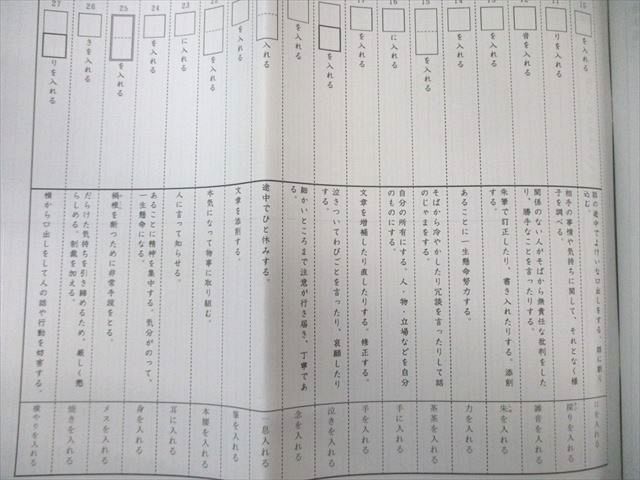 10
を入れる
話の途中でよけいな口出しをする。話に割り
込む。
口を入れる
11
りを入れる
相手の事情や気持ちに関して、それとなく様
子を調べる。
探りを入れる
12
音を入れる
関係のない人がそばから無責任な批判をした
り、勝手なことを言ったりする。
雑音を入れる
13
を入れる
朱筆で訂正したり、書き入れたりする。添削
する。
朱を入れる
14
を入れる
あることに一生懸命努力する。
力を入れる
15
を入れる
そばから冷やかしたり冗談を言ったりして話
のじゃまをする。
茶茶を入れる
16
に入れる
自分の所有にする。人・物・立場などを自分
のものにする。
手に入れる
17
を入れる
文章を増補したり直したりする。修正する。
手を入れる
を入れる
泣きついてわびごとを言ったり、哀願したり
する。
泣きを入れる
を入れる
細かいところまで注意が行き届き、丁寧であ
る。
念を入れる
入れる
途中でひと休みする。
一息入れる
を入れる
文章を添削する。
筆を入れる
22
を入れる
本気になって物事に取り組む。
本腰を入れる
23
に入れる
人に言って知らせる。
耳に入れる
24
を入れる
あることに精神を集中する。気分がのって、
一生懸命になる。
身を入れる
25
を入れる
禍根を断つために非常手段をとる。
メスを入れる
26
きを入れる
だらけた気持ちを引き締めるため、厳しく懲
らしめる。制裁を加える。
焼きを入れる
27
りを入れる
横から口出しをして人の話や行動を妨害する。
横やりを入れる